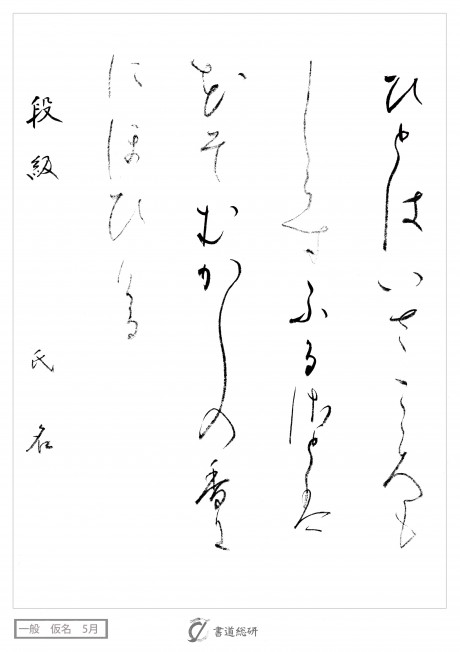 ひとはいさこゝろも
しらすふるさとは
花そむかしの香に
にほひける
段級 氏名
一般 仮名 5月
書道総研